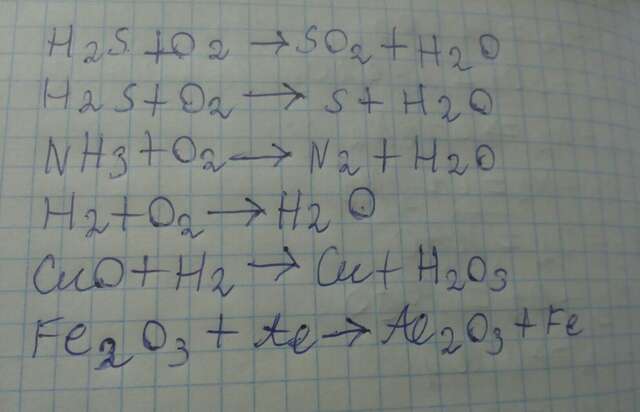 H2S + O2 → SO2 + H2O
H2S + O2 → S + H2O
NH3 + O2 → N2 + H2O
H2 + O2 → H2O
CuO + H2 → Cu + H2O3
Fe2O3 + Al → Al2O3 + Fe